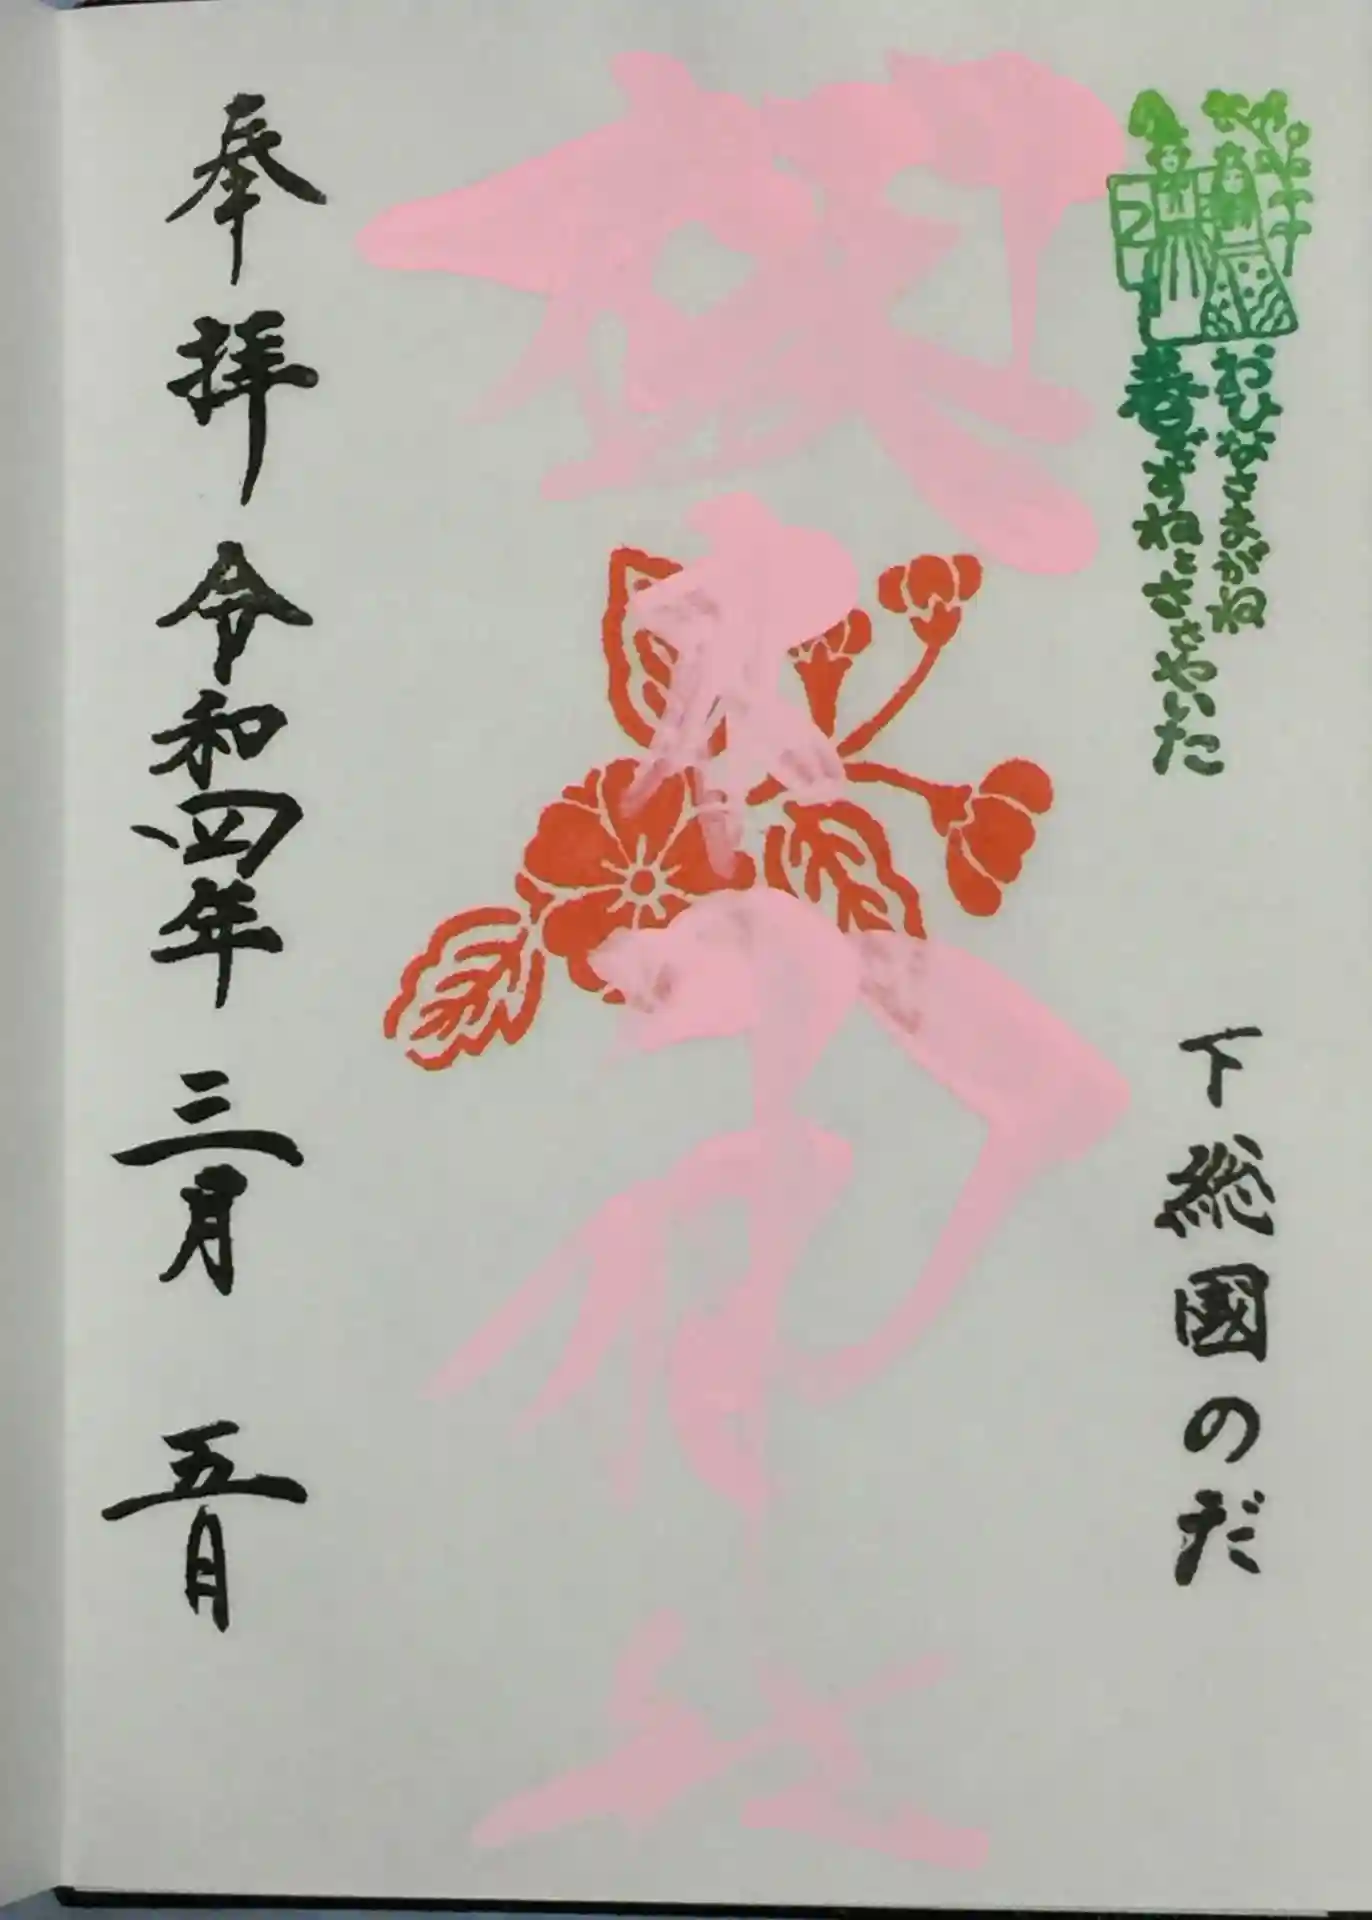 おひなさまがね
春ですねとささやいた
下総國のだ
櫻木神社
奉拝 令和四年三月 五日